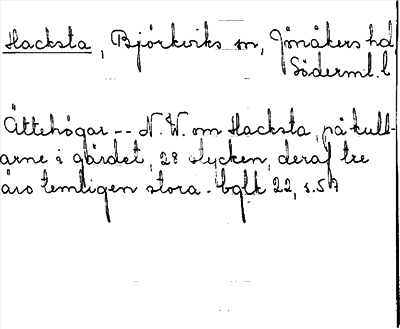 Hacksta, Björkviks sn, Jönåkers hd,
Söderml. l
Ättehögar -- N.W. om Hacksta, på kull-
arne i gärdet, 28 stycken, deraf tre
äro temligen stora. bglk 22, s.57